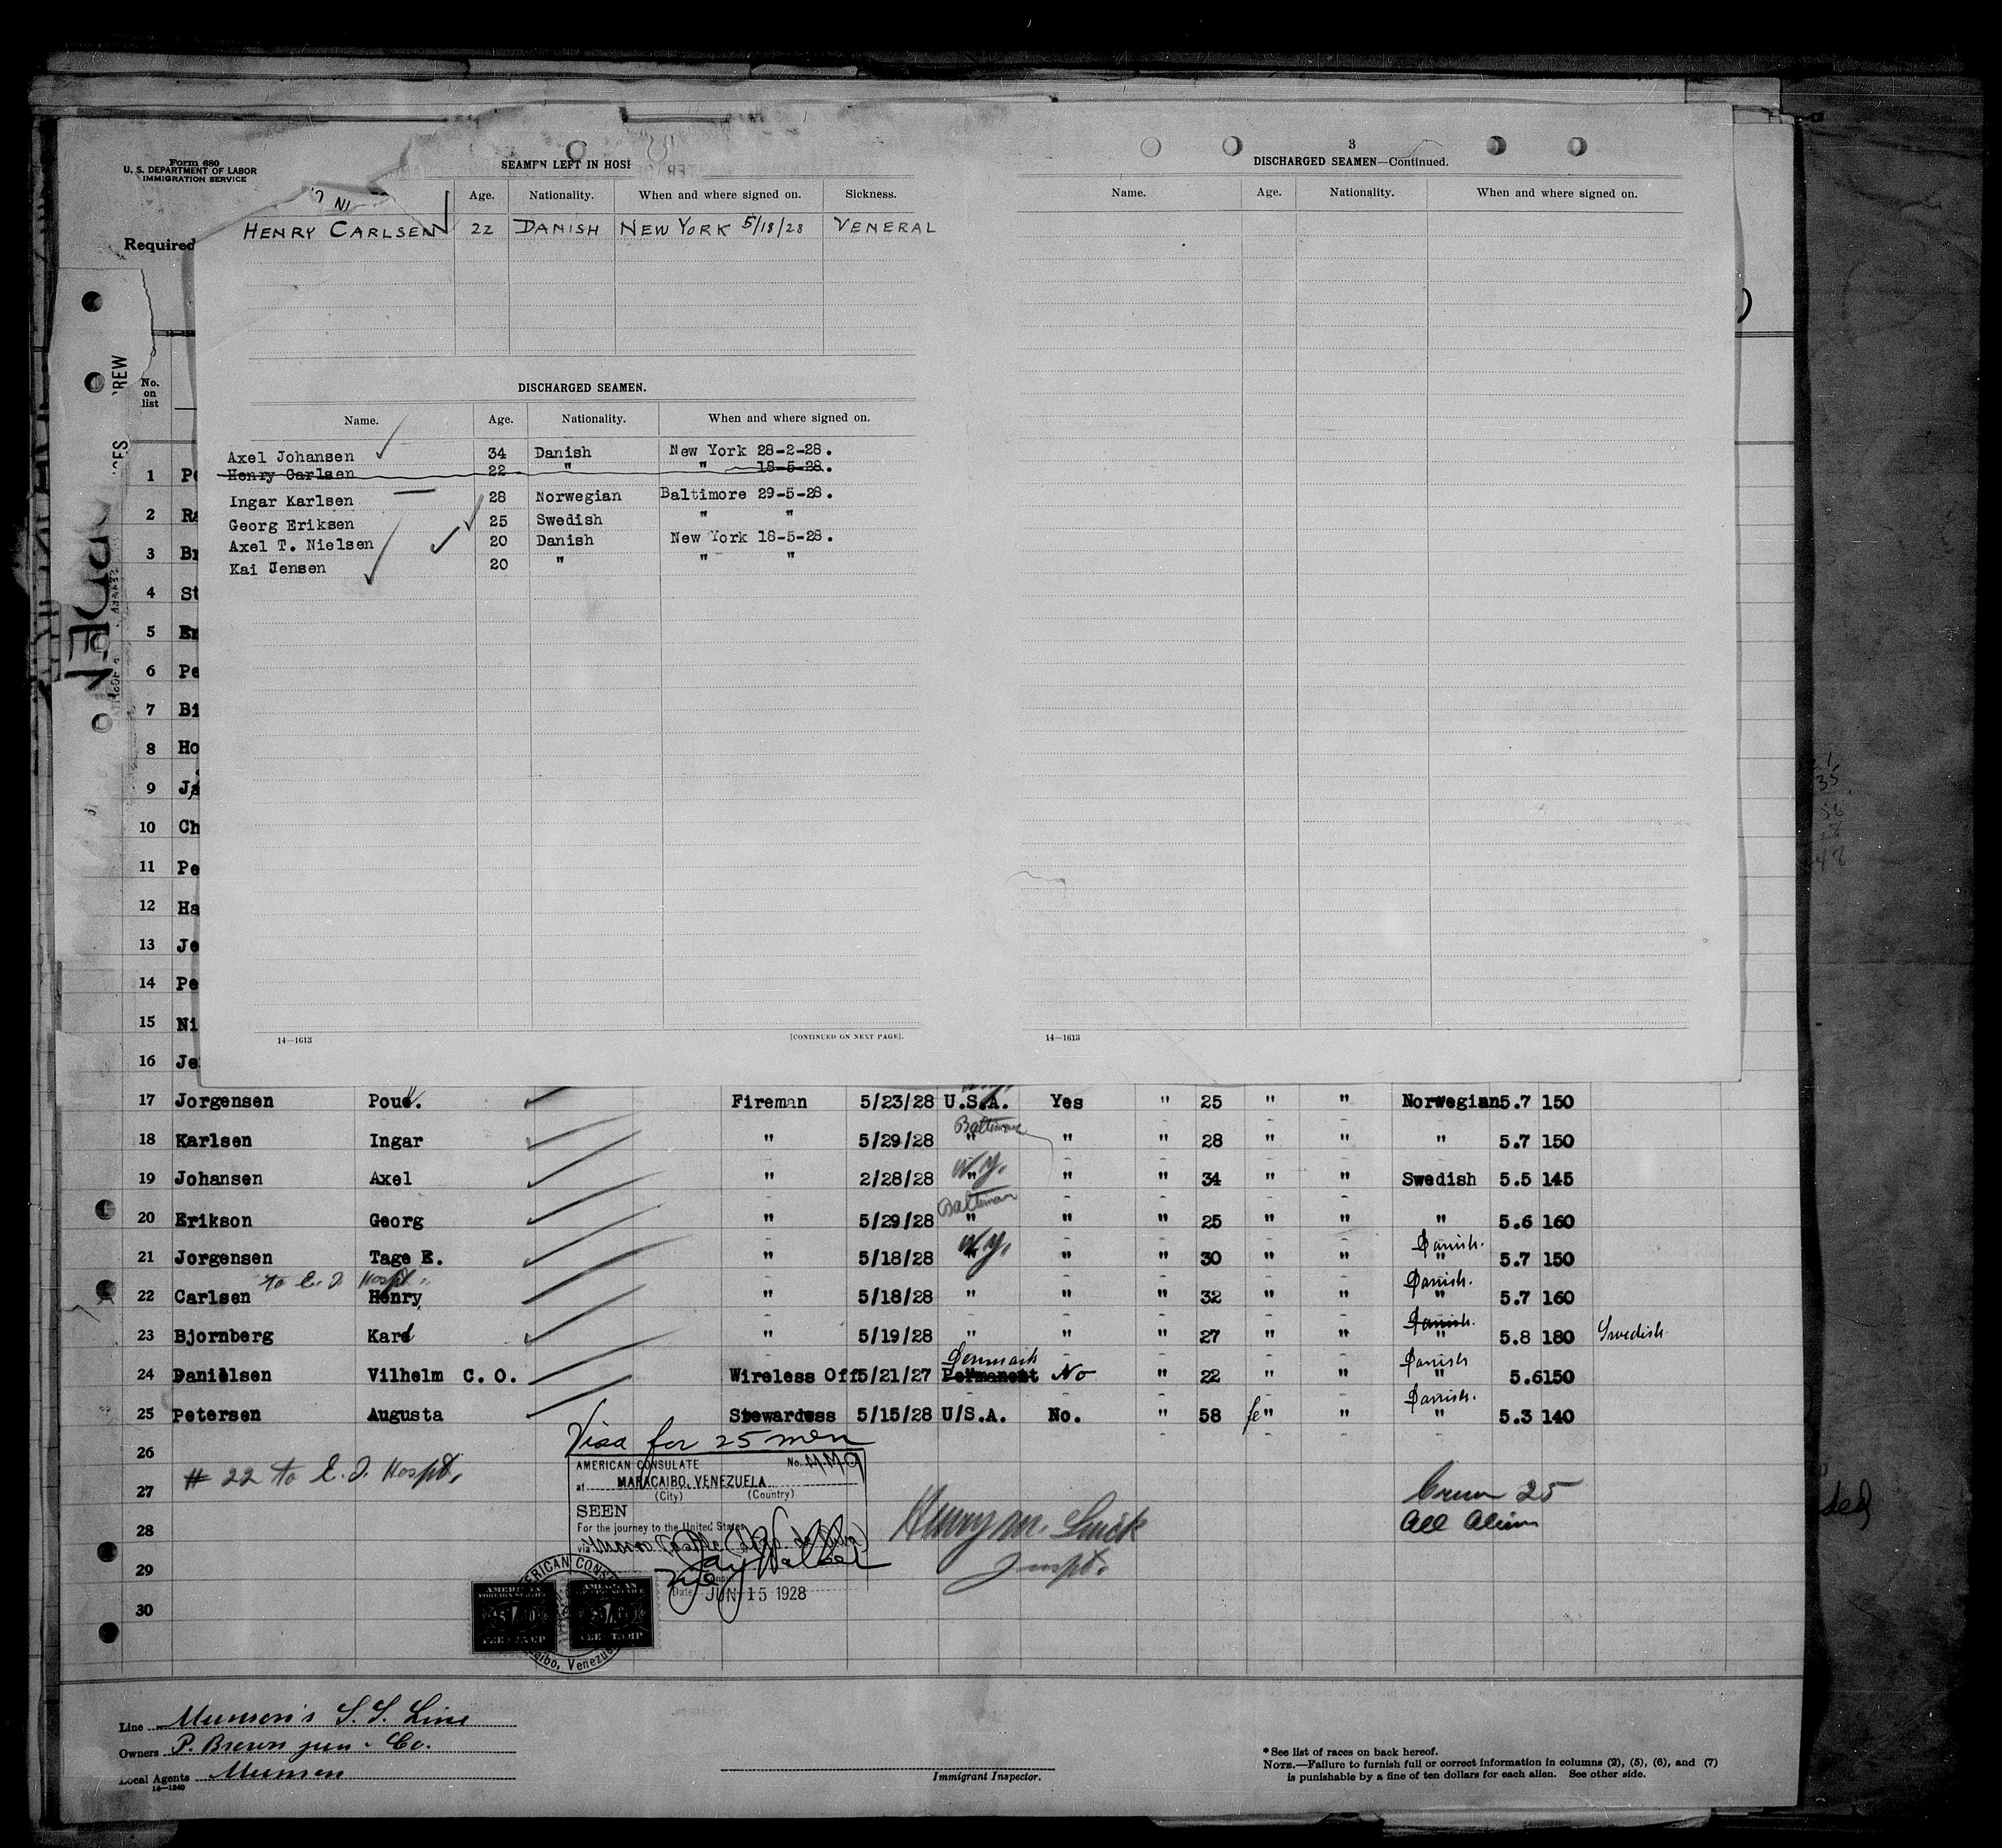 Form 680
U. S. DEPARTMENT OF LABOR
IMMIGRATION SERVICE
Required
SEAMEN LEFT IN HOSI
Age. Nationality. When and where signed on. Sickness.
HENRY CARLSEN 22 DANISH NEW YORK 5/18/28 VENERAL
DISCHARGED SEAMEN.
Name. Age. Nationality. When and where signed on.
Axel Johansen 34 Danish New York 28-2-28.
Henry Carlsen 22 " " 18-5-28.
Ingar Karlsen 28 Norwegian Baltimore 29-5-28.
Georg Eriksen 25 Swedish " "
Axel T. Nielsen 20 Danish New York 18-5-28.
Kai Jensen 20 " " "
14—1613 [CONTINUED ON NEXT PAGE].
3
DISCHARGED SEAMEN—Continued.
Name. Age. Nationality. When and where signed on.
14—1613
No. on list
1 Pe
2 Ra
3 Br
4 St
5 En
6 Pe
7 Bi
8 Ho
9 Ja
10 Ch
11 Pe
12 Ha
13 Je
14 Pe
15 Ni
16 Je
17 Jorgensen Poul. Fireman 5/23/28 U.S.A. Yes " 25 " " Norwegian 5.7 150
Baltimore
18 Karlsen Ingar " 5/29/28 " " " 28 " " " 5.7 150
N.Y.
19 Johansen Axel " 2/28/28 " " " 34 " " Swedish 5.5 145
Baltimore
20 Erikson Georg " 5/29/28 " " " 25 " " " 5.6 160
N.Y. Danish.
21 Jorgensen Tage E. " 5/18/28 " " " 30 " " " 5.7 150
to E. I. Hospt. Danish.
22 Carlsen Henry " 5/18/28 " " " 32 " " " 5.7 160
Danish.
23 Bjornberg Karl " 5/19/28 " " " 27 " " " 5.8 180 Swedish.
Denmark Danish
24 Danielsen Vilhelm C. O. Wireless Off 5/21/27 Permanent No " 22 " " " 5.6 150
Danish.
25 Petersen Augusta Stewardess 5/15/28 U/S.A. No. " 58 fe" " " 5.3 140
26
27
28
29
30
Visa for 25 men
# 22 to E. I. Hospt.
AMERICAN CONSULATE No. 449
at MARACAIBO, VENEZUELA
(City) (Country)
SEEN
For the journey to the United States
via
Jay Walker
Date JUN 15 1928
AMERICAN CONSU
AMERICAN
FOREIGN SERVICE
FEE STAMP
AMERICAN
FEE STAMP
aibo, Venezue
Henry M. Luick
Inspt.
Crew 25
All Alien
Line Munson's S. S. Line
Owners P. Brown jun. Co.
Local Agents Munson
Immigrant Inspector.
* See list of races on back hereof.
NOTE.—Failure to furnish full or correct information in columns (2), (5), (6), and (7)
is punishable by a fine of ten dollars for each alien. See other side.